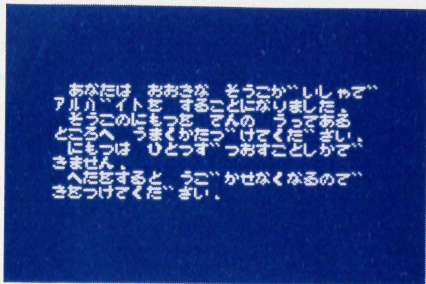 あなたは おおきな そうこが゛いしゃで゛
アルバ゛イトを することになりました。
そうこのにもつを てんの うってある
ところへ うまくかたづ゛けてくだ゛さい。
にもつは ひとつず゛つおすことしかで゛
きません。
へたをすると うご゛かせなくなるので゛
きをつけてくだ゛さい。